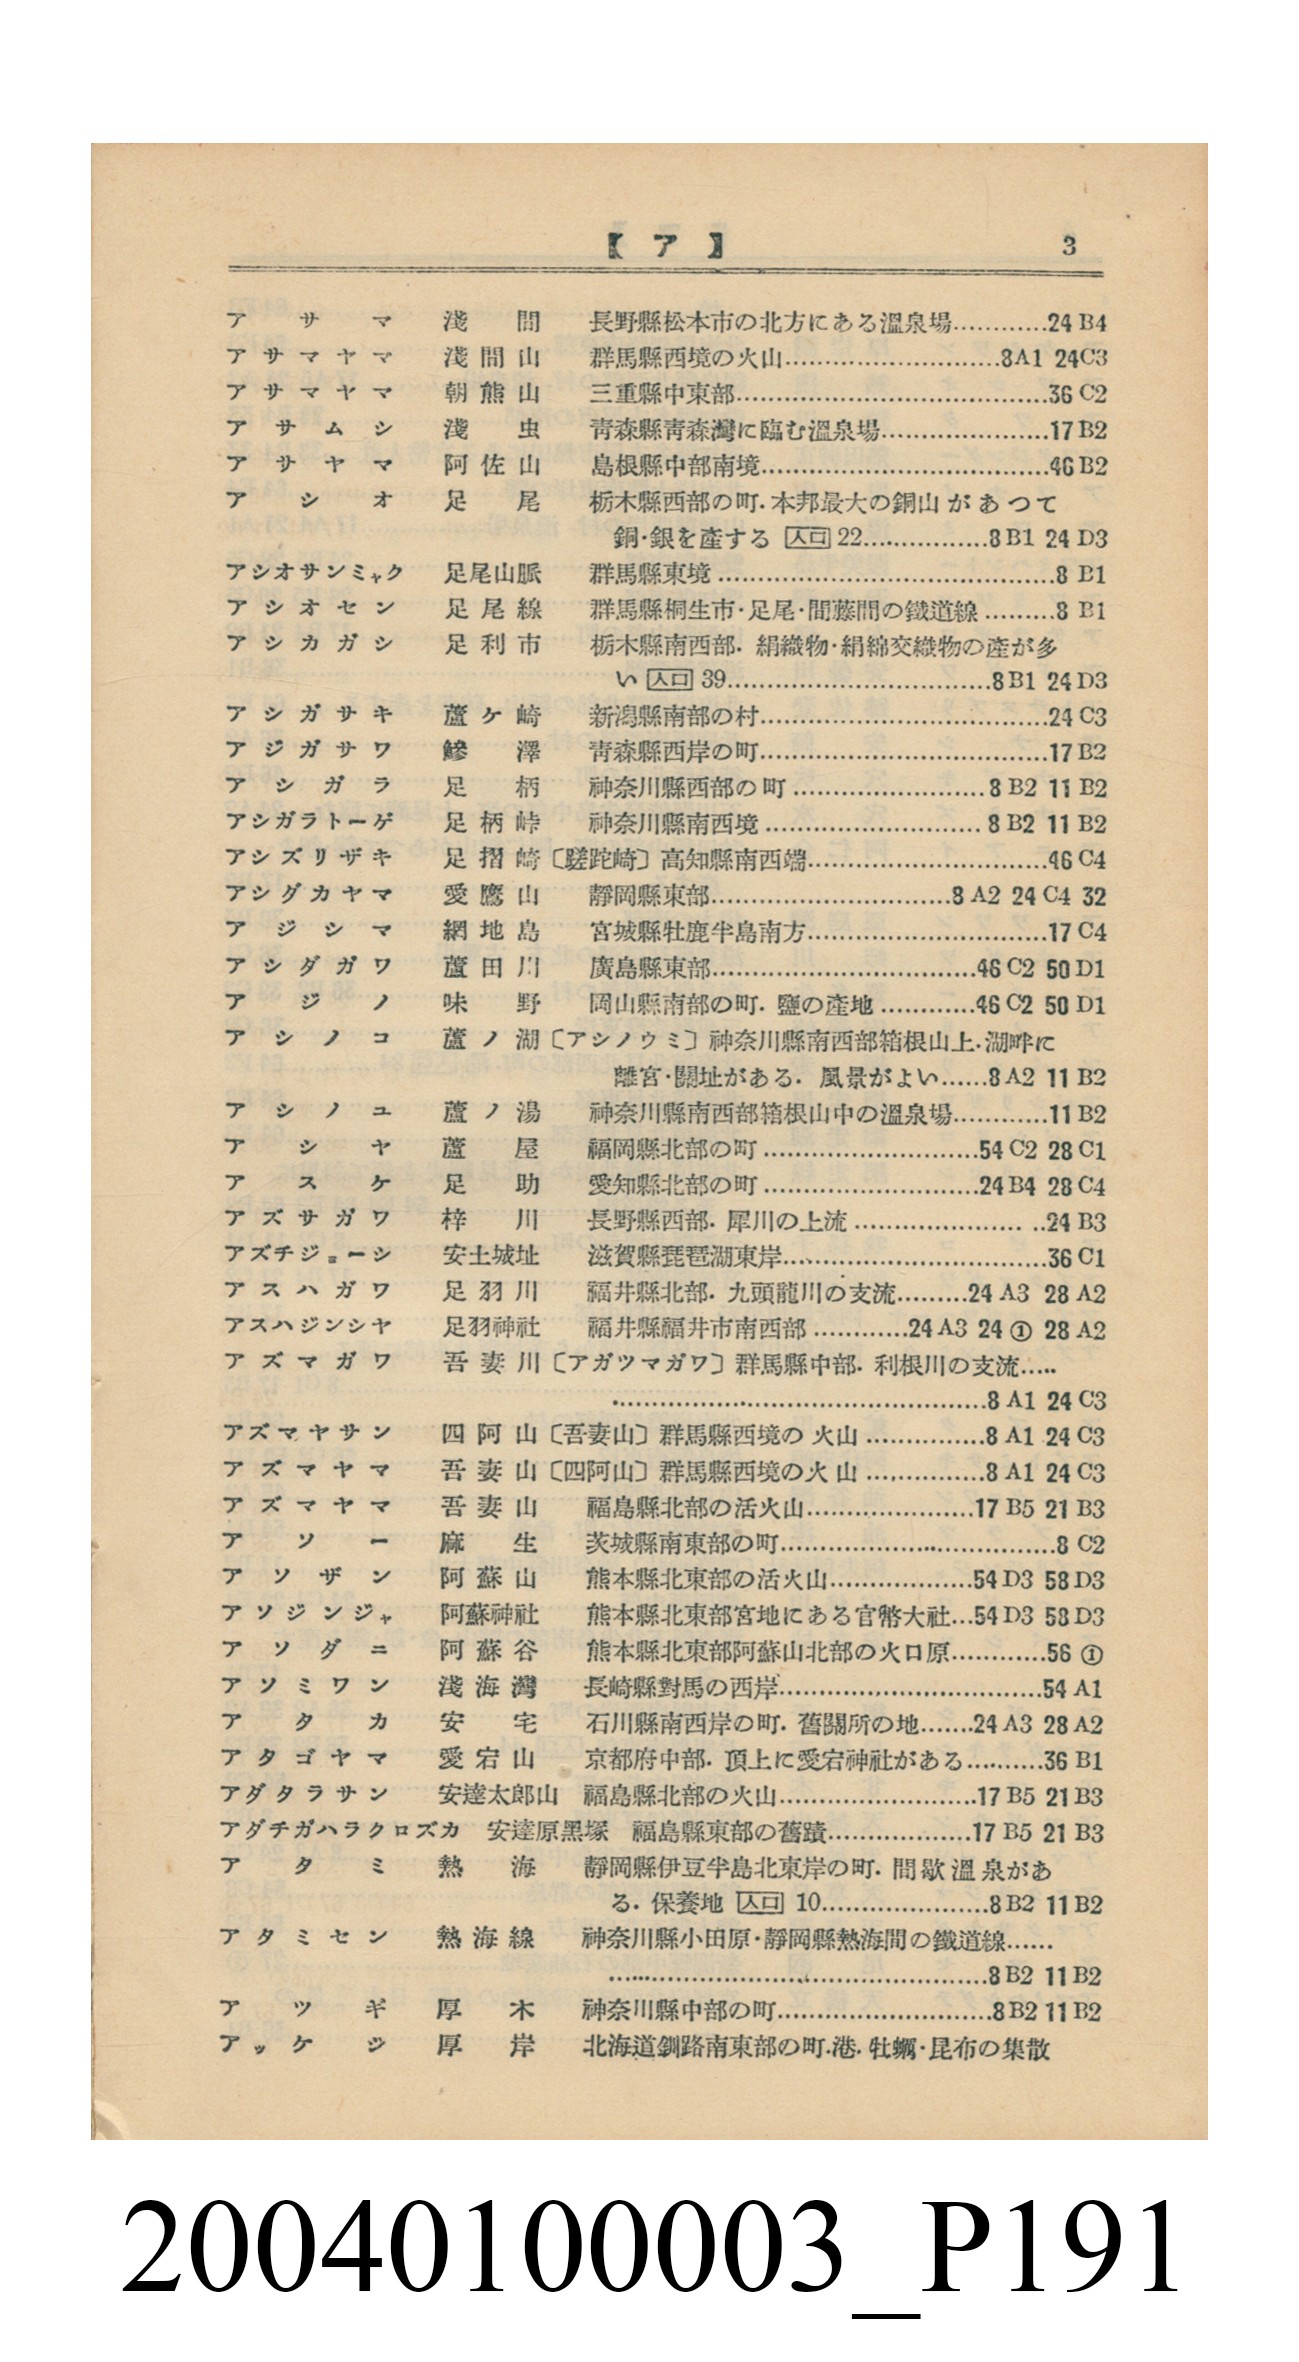 【ア】 3
アサマ 淺間 長野縣松本市の北方にある溫泉場............24 B4
アサマヤマ 淺間山 群馬縣西境の火山............8A1 24C3
アサマヤマ 朝熊山 三重縣中東部............36 C2
アサムシ 淺虫 靑森縣靑森灣に臨む溫泉場............17 B2
アサヤマ 阿佐山 島根縣中部南境............46 B2
アシオ 足尾 栃木縣西部の町．本邦最大の銅山があつて
銅・銀を產する 人口 22............8 B1 24 D3
アシオサンミャク 足尾山脈 群馬縣東境............8 B1
アシオセン 足尾線 群馬縣桐生市・足尾・間藤間の鐵道線............8 B1
アシカガシ 足利市 栃木縣南西部．絹織物・絹綿交織物の產が多
い 人口 39............8 B1 24 D3
アシガサキ 蘆ケ崎 新潟縣南部の村............24 C3
アジガサワ 鰺澤 靑森縣西岸の町............17 B2
アシガラ 足柄 神奈川縣西部の町............8 B2 11 B2
アシガラトーゲ 足柄峠 神奈川縣南西境............8 B2 11 B2
アシズリザキ 足摺崎〔蹉跎崎〕高知縣南西端............46 C4
アシダカヤマ 愛鷹山 靜岡縣東部............8 A2 24 C4 32
アジシマ 網地島 宮城縣牡鹿半島南方............17 C4
アシダガワ 蘆田川 廣島縣東部............46 C2 50 D1
アジノ 味野 岡山縣南部の町．鹽の產地............46 C2 50 D1
アシノコ 蘆ノ湖〔アシノウミ〕神奈川縣南西部箱根山上．湖畔に
離宮・關址がある．風景がよい......8 A2 11 B2
アシノユ 蘆ノ湯 神奈川縣南西部箱根山中の溫泉場............11 B2
アシヤ 蘆屋 福岡縣北部の町............54 C2 28 C1
アスケ 足助 愛知縣北部の町............24 B4 28 C4
アズサガワ 梓川 長野縣西部．犀川の上流............24 B3
アズチジョーシ 安土城址 滋賀縣琵琶湖東岸............36 C1
アスハガワ 足羽川 福井縣北部．九頭龍川の支流.........24 A3 28 A2
アスハジンシヤ 足羽神社 福井縣福井市南西部............24 A3 24 ① 28 A2
アズマガワ 吾妻川〔アガツマガワ〕群馬縣中部．利根川の支流.....
............8 A1 24 C3
アズマヤサン 四阿山〔吾妻山〕群馬縣西境の火山............8 A1 24 C3
アズマヤマ 吾妻山〔四阿山〕群馬縣西境の火山............8 A1 24 C3
アズマヤマ 吾妻山 福島縣北部の活火山............17 B5 21 B3
アソー 麻生 茨城縣南東部の町............8 C2
アソザン 阿蘇山 熊本縣北東部の活火山............54 D3 58 D3
アソジンジャ 阿蘇神社 熊本縣北東部宮地にある官幣大社...54 D3 58 D3
アソダニ 阿蘇谷 熊本縣北東部阿蘇山北部の火口原............56 ①
アソミワン 淺海灣 長崎縣對馬の西岸............54 A1
アタカ 安宅 石川縣南西岸の町．舊關所の地.......24 A3 28 A2
アタゴヤマ 愛宕山 京都府中部．頂上に愛宕神社がある..........36 B1
アダタラサン 安達太郎山 福島縣北部の火山............17 B5 21 B3
アダチガハラクロズカ 安達原黑塚 福島縣東部の舊蹟............17 B5 21 B3
アタミ 熱海 靜岡縣伊豆半島北東岸の町．間歇溫泉があ
る．保養地 人口 10............8 B2 11 B2
アタミセン 熱海線 神奈川縣小田原・靜岡縣熱海間の鐵道線......
............8 B2 11 B2
アツギ 厚木 神奈川縣中部の町............8 B2 11 B2
アッケシ 厚岸 北海道釧路南東部の町．港．牡蠣・昆布の集散
20040100003_P191